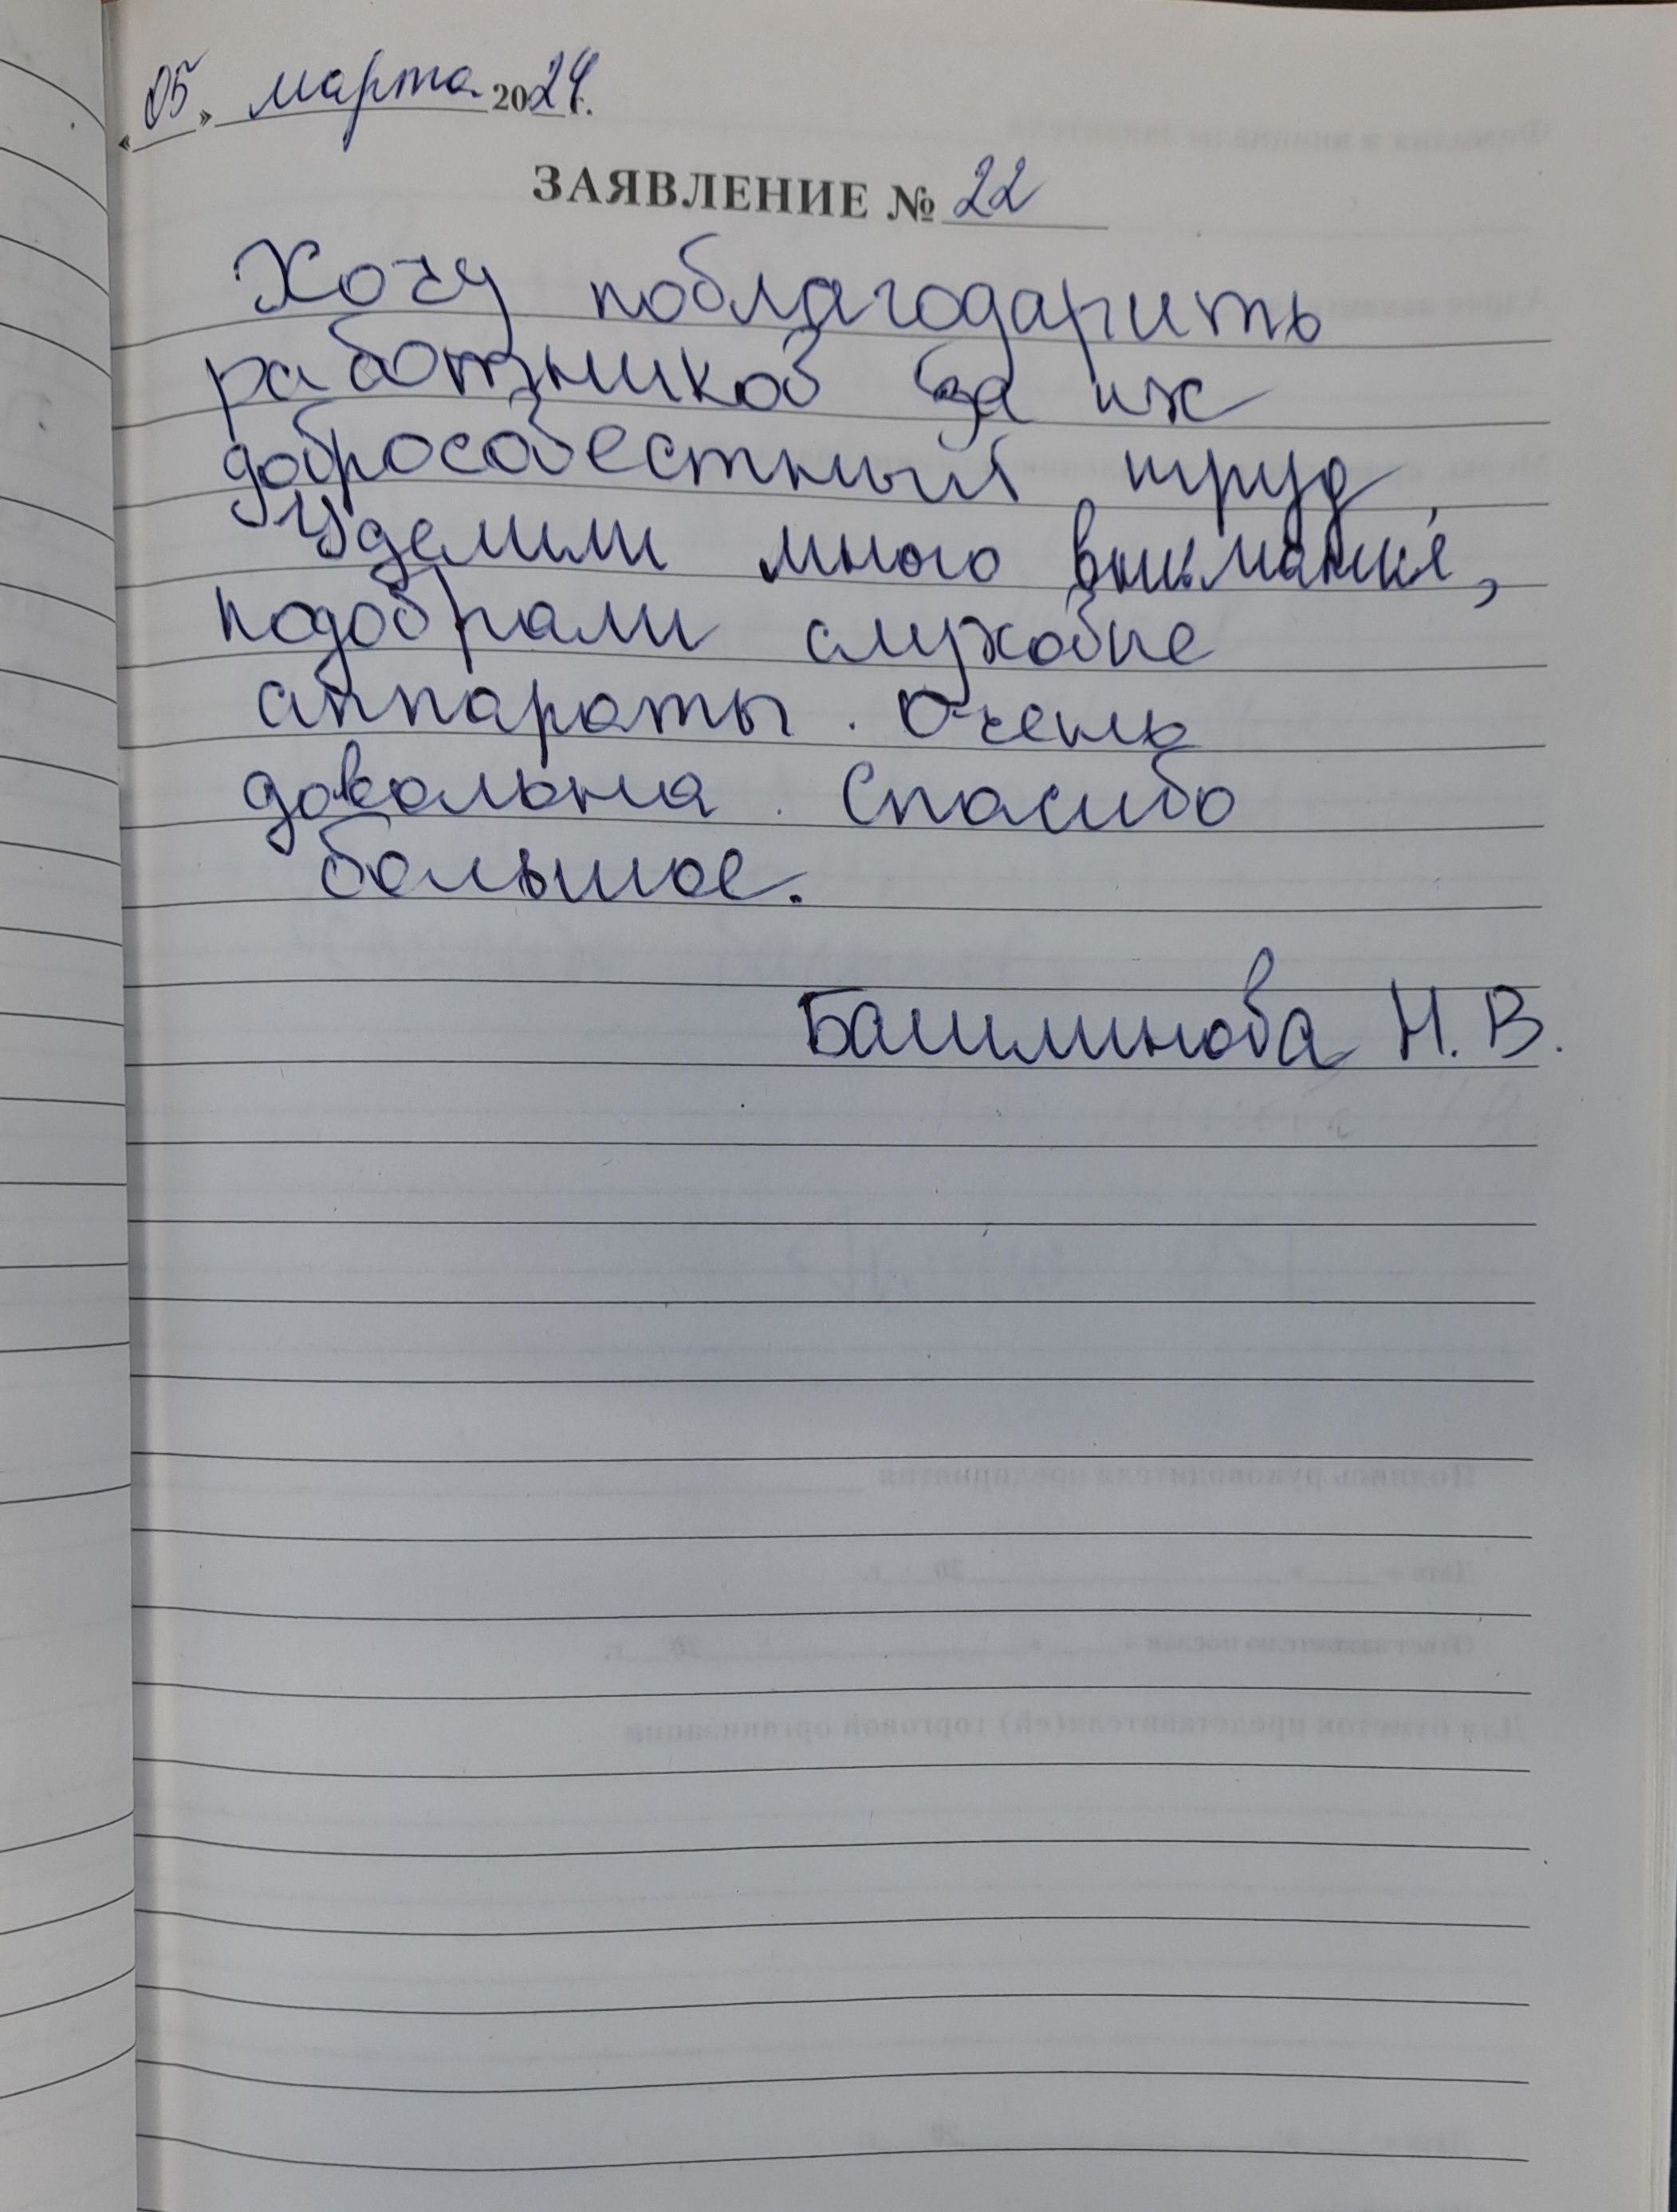 «05» марта 2024г.
ЗАЯВЛЕНИЕ № 22
Хочу поблагодарить
работников за их
добросовестный труд.
Уделили много внимания,
подобрали слуховые
аппараты. Очень
довольна. Спасибо
большое.
Башминова Н. В.